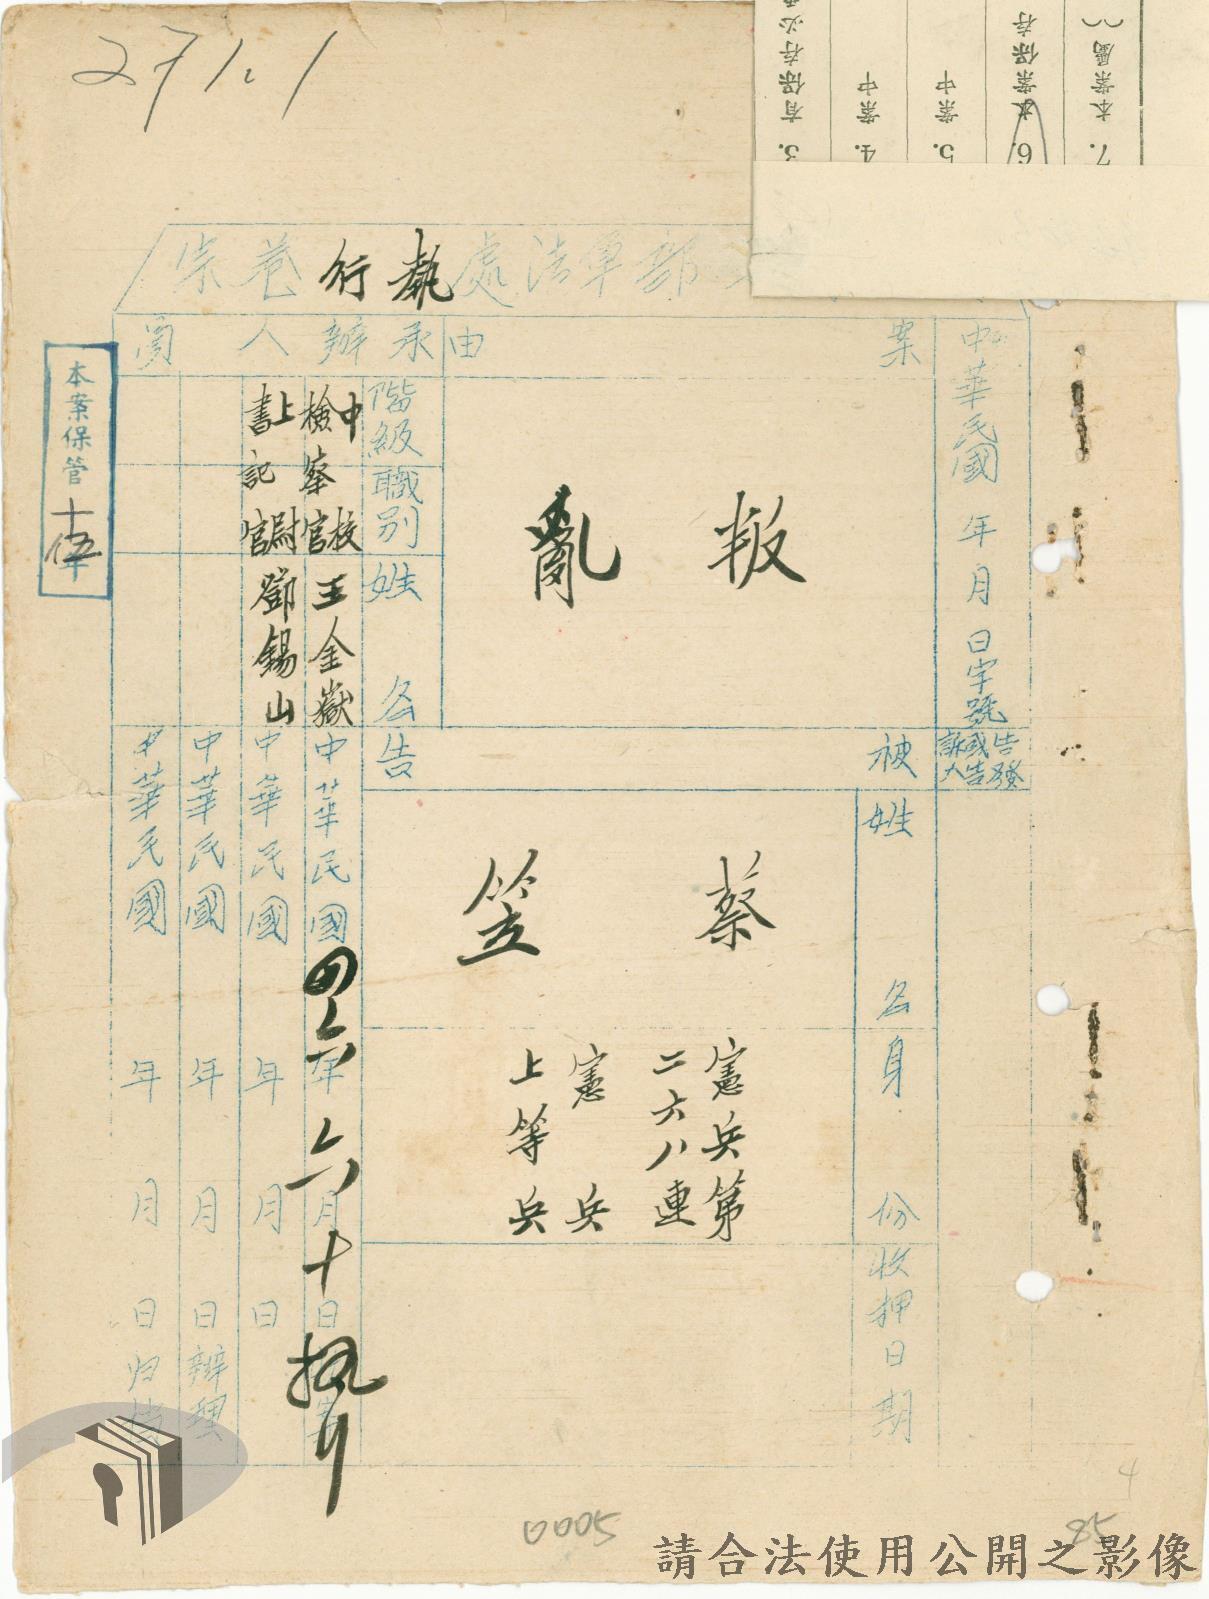 271.1
3. 有保存必
4. 案中
5. 案中
6. 本案保存
7. 本案屬（
部軍法處執行卷宗
中華民國 年 月 日字號
案由
叛亂
承辦人員
階級
職別
姓名
中校
檢察官
王金嶽
上尉
書記官
鄧錫山
告發
告訴人
被告
姓名
蔡笠
身份
憲兵第
二六八連
憲兵
上等兵
收押日期
中華民國四六年六月十日執行
中華民國 年 月 日
中華民國 年 月 日辦理
中華民國 年 月 日归档
本案保管十伍年
0005
85
4
請合法使用公開之影像